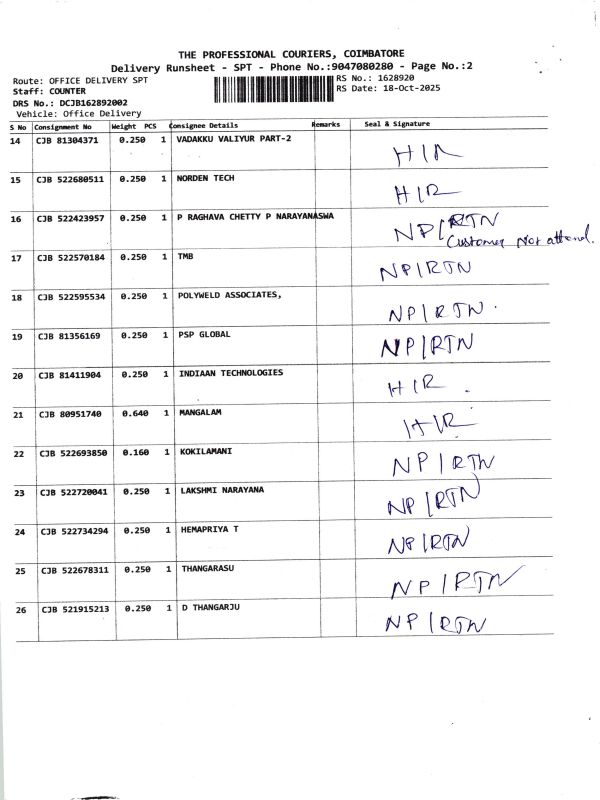 THE PROFESSIONAL COURIERS, COIMBATORE
Delivery Runsheet - SPT - Phone No.:9047080280 - Page No.:2
Route: OFFICE DELIVERY SPT
RS No.: 1628920
Staff: COUNTER
RS Date: 18-Oct-2025
DRS No.: DCJB162892002
Vehicle: Office Delivery
S No Consignment No Weight PCS Consignee Details Remarks Seal & Signature
14 CJB 81304371 0.250 1 VADAKKU VALIYUR PART-2 HIR
15 CJB 522680511 0.250 1 NORDEN TECH HIR
16 CJB 522423957 0.250 1 P RAGHAVA CHETTY P NARAYANASWA NP/RTN
Customer Not attend.
17 CJB 522570184 0.250 1 TMB NP/RTN
18 CJB 522595534 0.250 1 POLYWELD ASSOCIATES, NP/RTN.
19 CJB 81356169 0.250 1 PSP GLOBAL NP/RTN
20 CJB 81411904 0.250 1 INDIAAN TECHNOLOGIES HIR.
21 CJB 80951740 0.640 1 MANGALAM HIR
22 CJB 522693850 0.160 1 KOKILAMANI NP/RTN
23 CJB 522720041 0.250 1 LAKSHMI NARAYANA NP/RTN
24 CJB 522734294 0.250 1 HEMAPRIYA T NP/RTN
25 CJB 522678311 0.250 1 THANGARASU NP/RTN
26 CJB 521915213 0.250 1 D THANGARJU NP/RTN